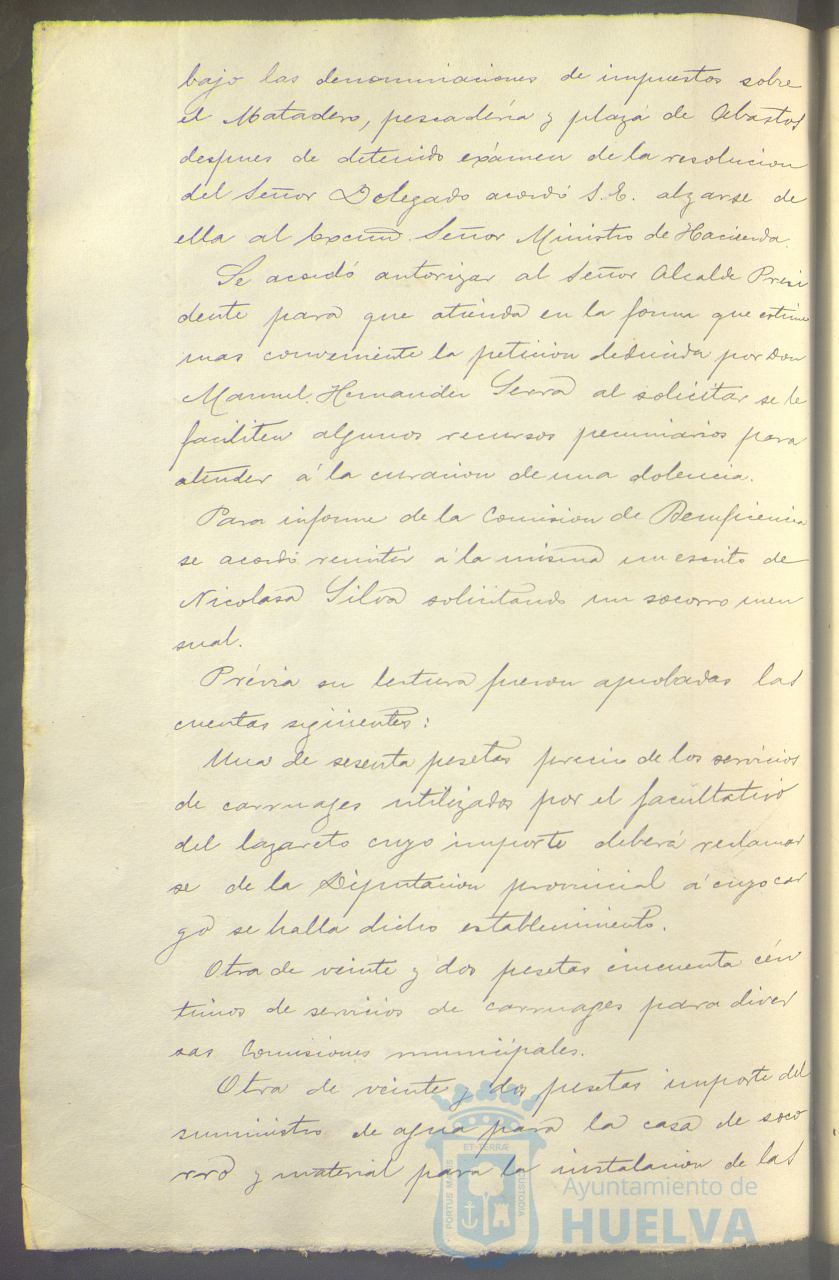 bajo las denominaciones de impuestos sobre
el Matadero, pescadería y plaza de Abastos
despues de detenido exámen de la resolucion
del Señor Delegado acordó S.E. alzarse de
ella al Excmo. Señor Ministro de Hacienda.
Se acordó autorizar al Señor Alcalde Presi
dente para que atienda en la forma que estime
mas conveniente la peticion deducida por Don
Manuel Hernandez Serra al solicitar se le
faciliten algunos recursos pecuniarios para
atender á la curacion de una dolencia.
Para informe de la Comision de Beneficencia
se acordó remitir á la misma un escrito de
Nicolasa Silva solicitando un socorro men
sual.
Prévia su lectura fueron aprobadas las
cuentas siguientes:
Una de sesenta pesetas precio de los servicios
de carruages utilizados por el facultativo
del lazareto cuyo importe deberá reclamar
se de la Diputacion provincial á cuyo car
go se halla dicho establecimiento.
Otra de veinte y dos pesetas cincuenta cén
timos de servicios de carruages para diver
sas Comisiones municipales.
Otra de veinte y dos pesetas importe del
suministro de agua para la casa de soco
rro y material para la instalacion de las
ET TERRÆ
PORTUS MARIS
CUSTODIA
Ayuntamiento de
HUELVA